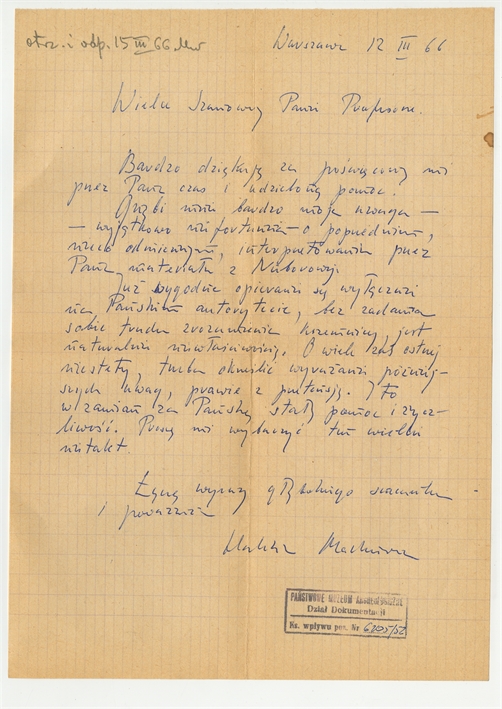 otrz. i odp. 15 III 66
Warszawa 12 III 66
Wielce Szanowny Panie Profesorze.
Bardzo dziękuję za poświęcony mi
przez Pana czas i udzieloną pomoc.
Gnębi mnie bardzo moja uwaga –
– wyjątkowo niefortunna – o poprzednim,
nieco odmiennym, interpretowaniu przez
Pana materiału z Nieborowej.
Już wygodne opieranie się wyłącznie
na Pańskim autorytecie, bez zadania
sobie trudu zrozumienia krzemienicy, jest
naturalnie niewłaściwością. O wiele zaś ostrzej
niestety, trzeba określić wyrażanie później-
szych uwag, prawie z pretensją. I to
w zamian za Pańską stałą pomoc i życz-
liwość. Proszę mi wybaczyć ten wielki
nietakt.
Łączę wyrazy głębokiego szacunku
i poważania
PAŃSTWOWE MUZEUM ARCHEOLOGICZNE
Dział Dokumentacji
Ks. wpływu poz. Nr 6205/52